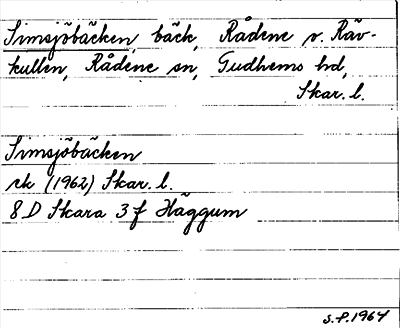 Simsjöbäcken, bäck, Rådene v. Räv-
kullen, Rådene sn, Gudhems hd,
Skar. l.
Simsjöbäcken
ek (1962) Skar. l.
8 D Skara 3 f Häggum
S.P. 1964